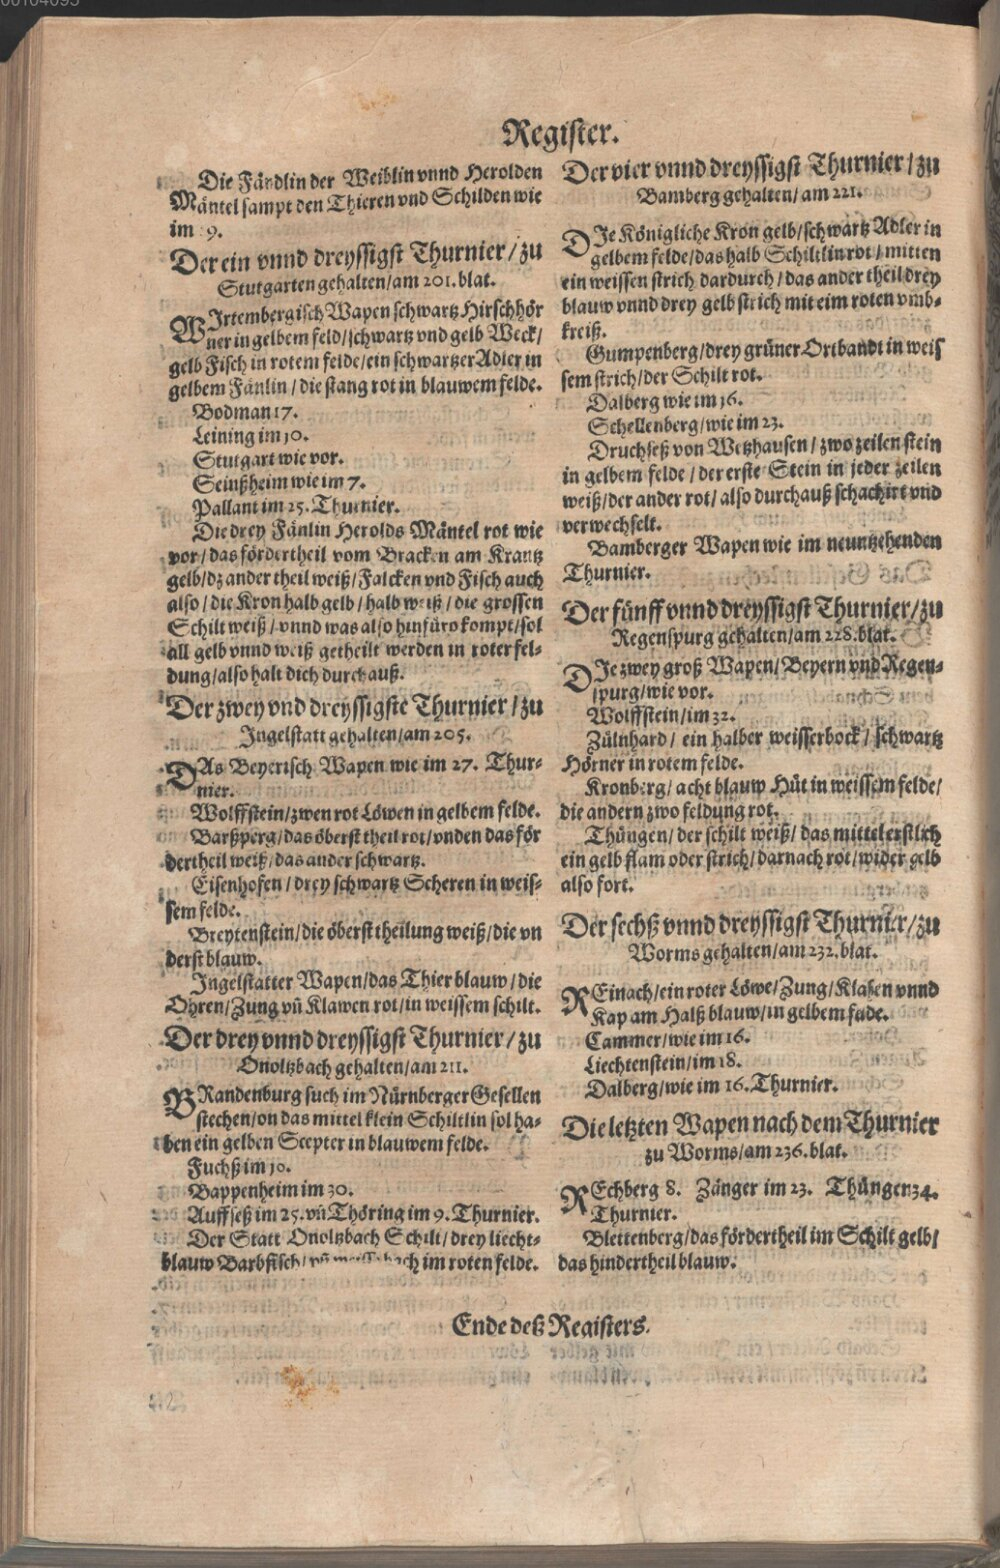 00104095
Register.
Die Fändlin der Weiblin vnnd Herolden
Mäntel sampt den Thieren vnd Schilden wie
im 9.
Der ein vnnd dreyssigst Thurnier / zu
Stutgarten gehalten / am 201. blat.
WIrtembergisch Wapen schwartz Hirschhör
ner in gelbem feld / schwartz vnd gelb Weck /
gelb Fisch in rotem felde / ein schwartzer Adler in
gelbem Fänlin / die stang rot in blauwem felde.
Bodman 17.
Leining im 10.
Stutgart wie vor.
Seinßheim wie im 7.
Pallant im 25. Thurnier.
Die drey Fänlin Herolds Mäntel rot wie
vor / das fördertheil vom Bracken am Krantz
gelb / dz ander theil weiß / Falcken vnd Fisch auch
also / die Kron halb gelb / halb weiß / die grossen
Schilt weiß / vnnd was also hinfüro kompt / sol
all gelb vnnd weiß getheilt werden in roter fel-
dung / also halt dich durchauß.
Der zwey vnd dreyssigste Thurnier / zu
Ingelstatt gehalten / am 205.
DAs Beyerisch Wapen wie im 27. Thur-
nier.
Wolffstein / zwen rot Löwen in gelbem felde.
Barßperg / das öberst theil rot / vnden das för
dertheil weiß / das ander schwartz.
Eisenhofen / drey schwartz Scheren in weis-
sem felde.
Breytenstein / die öberst theilung weiß / die vn
derst blauw.
Ingelstatter Wapen / das Thier blauw / die
Ohren / Zung vñ Klawen rot / in weissem schilt.
Der drey vnnd dreyssigst Thurnier / zu
Onoltzbach gehalten / am 211.
BRandenburg such im Nürnberger Gesellen
stechen / on das mittel klein Schiltlin sol ha-
ben ein gelben Scepter in blauwem felde.
Fuchß im 10.
Bappenheim im 30.
Auffseß im 25. vñ Thöring im 9. Thurnier.
Der Statt Onoltzbach Schilt / drey liecht-
blauw Barbfisch / vñ im roten felde.
Der vier vnnd dreyssigst Thurnier / zu
Bamberg gehalten / am 221.
DIe Königliche Kron gelb / schwartz Adler in
gelbem felde / das halb Schiltlin rot / mitten
ein weissen strich dardurch / das ander theil drey
blauw vnnd drey gelb strich mit eim roten vmb-
kreiß.
Gumpenberg / drey grüner Ortbandt in weis
sem strich / der Schilt rot.
Dalberg wie im 16.
Schellenberg / wie im 23.
Druchseß von Wetzhausen / zwo zeilen stein
in gelbem felde / der erste Stein in jeder zeilen
weiß / der ander rot / also durchauß schachirt vnd
verwechselt.
Bamberger Wapen wie im neuntzehenden
Thurnier.
Der fünff vnnd dreyssigst Thurnier / zu
Regenspurg gehalten / am 228. blat.
DIe zwey groß Wapen / Beyern vnd Regen-
spurg / wie vor.
Wolffstein / im 32.
Zülnhard / ein halber weisserbock / schwartz
Hörner in rotem felde.
Kronberg / acht blauw Hüt in weissem felde /
die andern zwo feldung rot.
Thüngen / der schilt weiß / das mittel erstlich
ein gelb flam oder strich / darnach rot / wider gelb
also fort.
Der sechß vnnd dreyssigst Thurnier / zu
Worms gehalten / am 232. blat.
REinach / ein roter Löwe / Zung / Klaßen vnnd
Kap am Halß blauw / in gelbem felde.
Cammer / wie im 16.
Liechtenstein / im 18.
Dalberg / wie im 16. Thurnier.
Die letzten Wapen nach dem Thurnier
zu Worms / am 236. blat.
REchberg 8. Zänger im 23. Thüngen 34.
Thurnier.
Blettenberg / das fördertheil im Schilt gelb /
das hindertheil blauw.
Ende deß Registers.